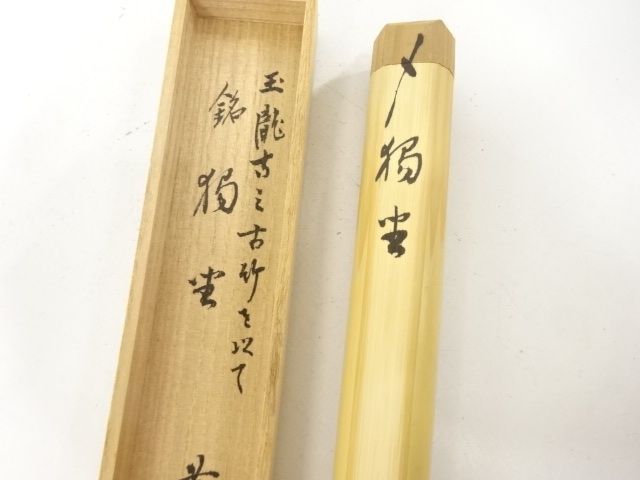 玉龍寺之古竹を以て
銘 獨坐
〆獨坐